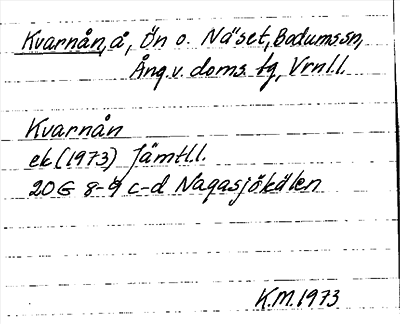 Kvarnån, å, Ön o. Näset, Bodums sn,
Ång. v. doms. tg, Vrnll.
Kvarnån
ek (1973) Jämtl.l.
20G 8-9 c-d Nagasjökälen
K.M. 1973